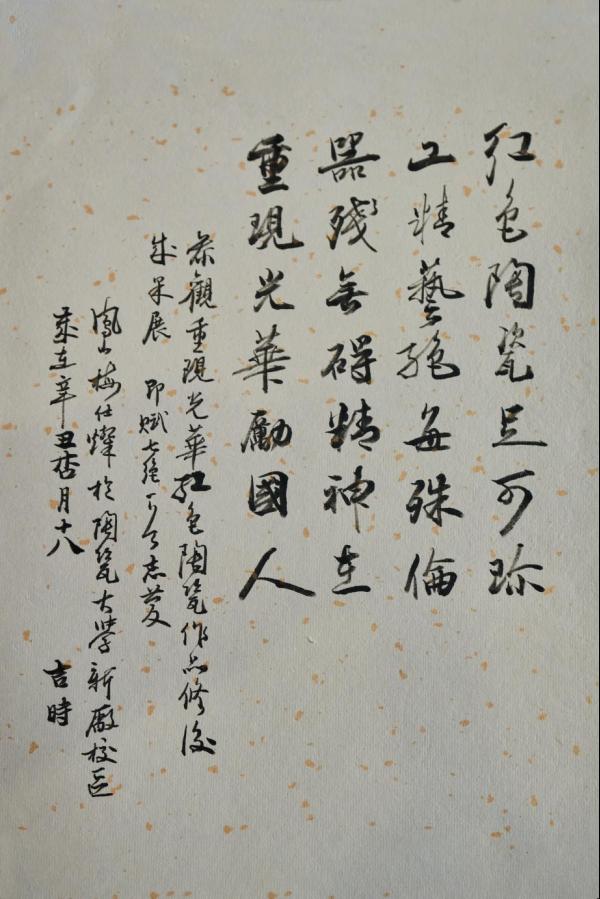 紅色陶瓷足可珍
工精藝絕每殊倫
器殘無碍精神在
重現光華勵國人
恭觀重現光華紅色陶瓷作品修復
成果展 即賦七絕志慶
鳳山梅仕燦於陶瓷大學新廠校區
歲在辛丑杏月十八 吉時